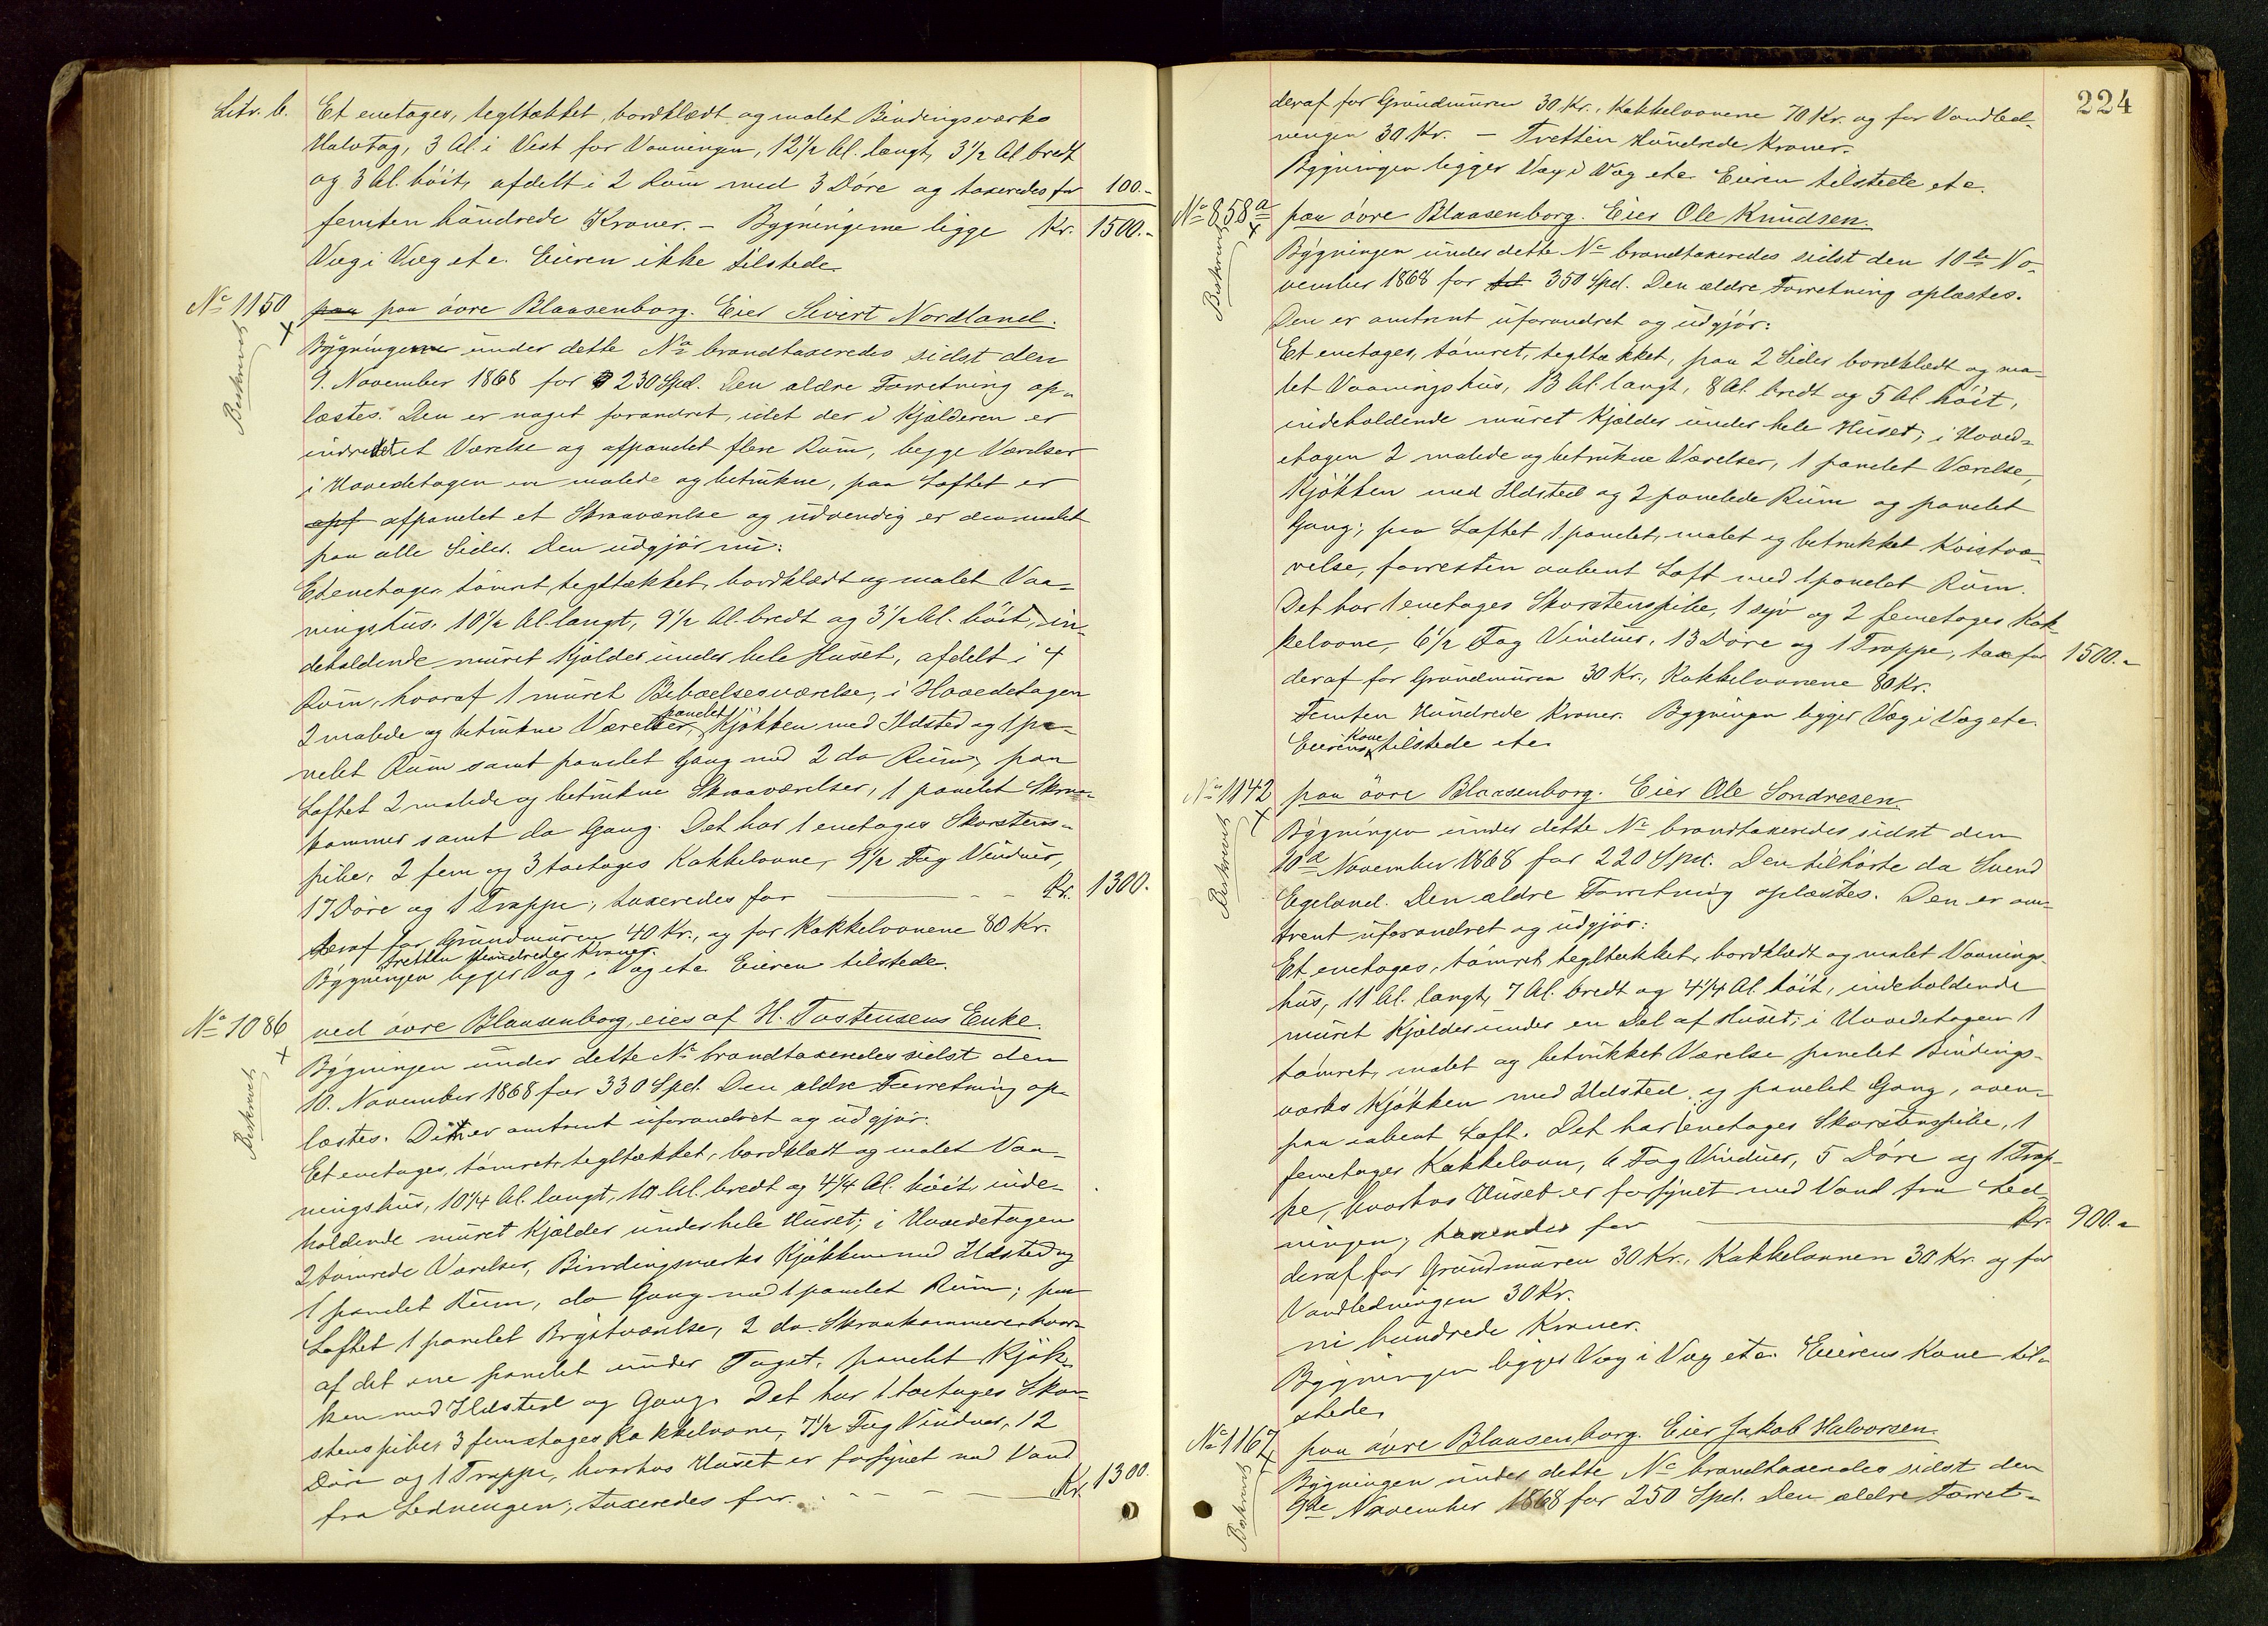 Litr. b. Et enetages, tegltækket, bordklædt og malet Bindingsværks
Halvtag, 3 Al. i Vest for Vaaningen, 12 1/2 Al. langt, 3 1/2 Al. bredt
og 3 Al. höit, afdelt i 2 Rum med 3 Döre og taxeredes for 100.-
femten hundrede Kroner. - Bygningerne ligge Kr. 1500.-
Væg i Væg etc. Eieren ikke tilstede.
No 1150 paa paa övre Blaasenborg. Eier Sivert Nordland.
Beskrevet
Bygningerne under dette No brandtaxeredes sidst den
9. November 1868 for 230 Spd. Den ældre Forretning op-
læstes. Den er noget forandret, idet der i Kjælderen er
indredet et Værelse og afpanelet flere Rum, begge Værelser
i Hovedetagen er malede og betrukne, paa Loftet er
apf afpanelet et Skraaværelse og udvendig er den malet
paa alle Sider. Den udgjör nu:
Et enetages tömret, tegltækket, bordklædt og malet Vaa-
ningshus, 10 1/2 Al. langt, 9 1/2 Al. bredt og 3 1/2 Al. höit, in-
deholdende muret Kjælder under hele Huset, afdelt i 4
Rum, hvoraf 1 muret Beboelsesværelse, i Hovedetagen
2 malede og betrukne Værelser, panelet Kjökken med Ildsted og 1 pa-
nelet Rum samt panelet Gang med 2 do Rum, paa
Loftet 2 malede og betrukne Skraaværelser, 1 panelet Skraa-
kammer samt do Gang. Det har 1 enetages Skorstens-
pibe, 2 fem og 3 toetages Kakkelovne, 9 1/2 Fag Vinduer,
17 Döre og 1 Trappe, taxeredes for - - Kr. 1300.-
deraf for Grundmuren 40 Kr., og for Kakkelovnene 80 Kr.
tretten Hundrede Kroner.
Bygningen ligger Væg i Væg etc. Eieren tilstede.
No 1086 ved övre Blaasenborg, eies af H. Tostensens Enke.
Beskrevet
Bygningen under dette No brandtaxeredes sidst den
10. November 1868 for 330 Spd. Den ældre Forretning op-
læstes. Den er omtrent uforandret og udgjör:
Et enetages, tömret, tegltækket, bordklædt og malet Vaa-
ningshus, 10 1/4 Al. langt, 10 Al. bredt og 4 1/4 Al. höit, inde-
holdende muret Kjælder under hele Huset; i Hovedetagen
2 tömrede Værelser, Bindingsværks Kjökken med Ildsted og
1 panelet Rum, do Gang med 1 panelet Rum; paa
Loftet 1 panelet Brystværelse, 2 do. Skraakammere hvor-
af det ene panelet under Taget, panelet Kjök-
ken med Ildsted og Gang. Det har 1 toetages Skor-
stenspibe, 3 femetages Kakkelovne, 7 1/2 Fag Vinduer, 12
Döre og 1 Trappe, hvorhos Huset er forsynet med Vand
fra Ledningen; taxeredes for - - - Kr. 1300.
224
deraf for Grundmuren 30 Kr., Kakkelovnene 70 Kr. og for Vandled-
ningen 30 Kr. - Tretten Hundrede Kroner.
Bygningen ligger Væg i Væg etc. Eieren tilstede etc.
No 858 a paa övre Blaasenborg. Eier Ole Knudsen.
Beskrevet
Bygningen under dette No brandtaxeredes sidst den 10de No-
vember 1868 for 350 Spd. Den ældre Forretning oplæstes.
Den er omtrent uforandret og udgjör:
Et enetages, tömret, tegltækket, paa 2 Sider bordklædt og ma-
let Vaaningshus, 13 Al. langt, 8 Al. bredt og 5 Al. höit,
indeholdende muret Kjælder under hele Huset; i Hoved-
etagen 2 malede og betrukne Værelser, 1 panelet Værelse,
Kjökken med Ildsted og 2 panelede Rum og panelet
Gang; paa Loftet 1 panelet, malet og betrukket Kvistvæ-
relse, forresten aabent Loft med 1 panelet Rum.
Det har 1 enetages Skorstenspibe, 1 syv og 2 femetages Kak-
kelovne, 6 1/2 Fag Vinduer, 13 Döre og 1 Trappe, tax for 1500.-
deraf for Grundmuren 30 Kr., Kakkelovnene 80 Kr.
Femten Hundrede Kroner. Bygningen ligger Væg i Væg etc.
Eierens Kone tilstede etc.
No 1142 paa övre Blaasenborg. Eier Ole Sondresen.
Beskrevet
Bygningen under dette No brandtaxeredes sidst den
10de November 1868 for 220 Spd. Den tilhörte da Svend
Egeland. Den ældre Forretning oplæstes. Den er om-
trent uforandret og udgjör:
Et enetages, tömret, tegltækket, bordklædt og malet Vaanings-
hus, 11 Al. langt, 7 Al. bredt og 4 1/4 Al. höit, indeholdende
muret Kjælder under en Del af Huset; i Hovedetagen 1
tömret, malet og betrukket Værelse panelet Bindings-
værks Kjökken med Ildsted og panelet Gang, oven-
paa aabent Loft. Det har 1 enetages Skorstenspibe, 1
femetages Kakkelovn, 6 Fag Vinduer, 5 Döre og 1 Trap-
pe, hvorhos Huset er forsynet med Vand fra Led-
ningen; taxeredes for - Kr. 900.-
deraf for Grundmuren 30 Kr., Kakkelovnen 30 Kr. og for
Vandledningen 30 Kr.
ni hundrede Kroner.
Bygningen ligger Væg i Væg etc. Eierens Kone til-
stede.
No 1167 paa övre Blaasenborg. Eier Jakob Halvorsen.
Beskrevet
Bygningen under dette No brandtaxeredes sidst den
9de November 1868 for 250 Spd. Den ældre Forret-